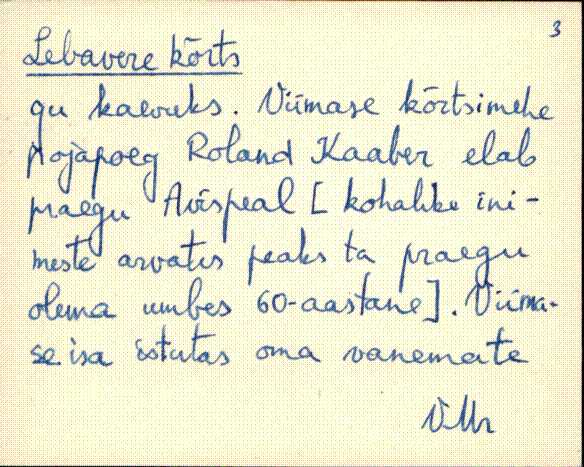 3
Lebavere kõrts
gu kaevuks. Viimase kõrtsimehe
pojapoeg Roland Kaaber elab
praegu Avispeal [kohalike ini-
meste arvates peaks ta praegu
olema umbes 60-aastane]. Viima-
se isa istutas oma vanemate